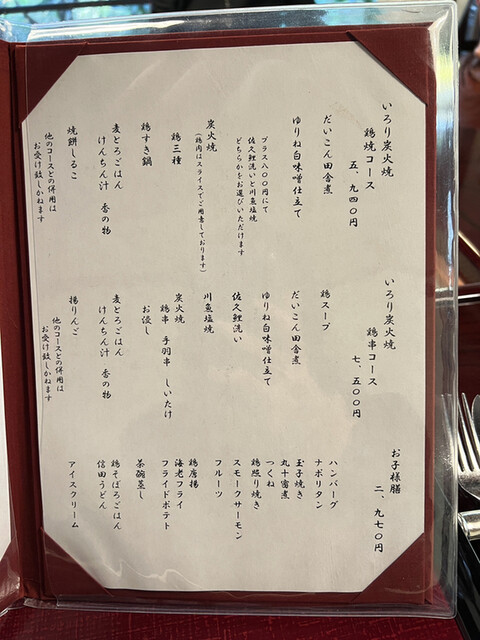 いろり炭火焼
鶏焼コース
五、九四〇円
だいこん田舎煮
ゆりね白味噌仕立て
プラス八〇〇円にて
佐久鯉洗いと川魚塩焼
どちらかをお選びいただけます
炭火焼
(鶏肉はスライスでご用意しております)
鶏三種
鶏すき鍋
麦とろごはん
けんちん汁 香の物
焼餅しるこ
他のコースとの併用は
お受け致しかねます
いろり炭火焼
鶏串コース
七、五〇〇円
鶏スープ
だいこん田舎煮
ゆりね白味噌仕立て
佐久鯉洗い
川魚塩焼
炭火焼
鶏串 手羽串 しいたけ
お浸し
麦とろごはん
けんちん汁 香の物
揚りんご
他のコースとの併用は
お受け致しかねます
お子様膳
二、九七〇円
ハンバーグ
ナポリタン
玉子焼き
丸十蜜煮
つくね
鶏照り焼き
スモークサーモン
フルーツ
鶏唐揚
海老フライ
フライドポテト
茶碗蒸し
鶏そぼろごはん
信田うどん
アイスクリーム